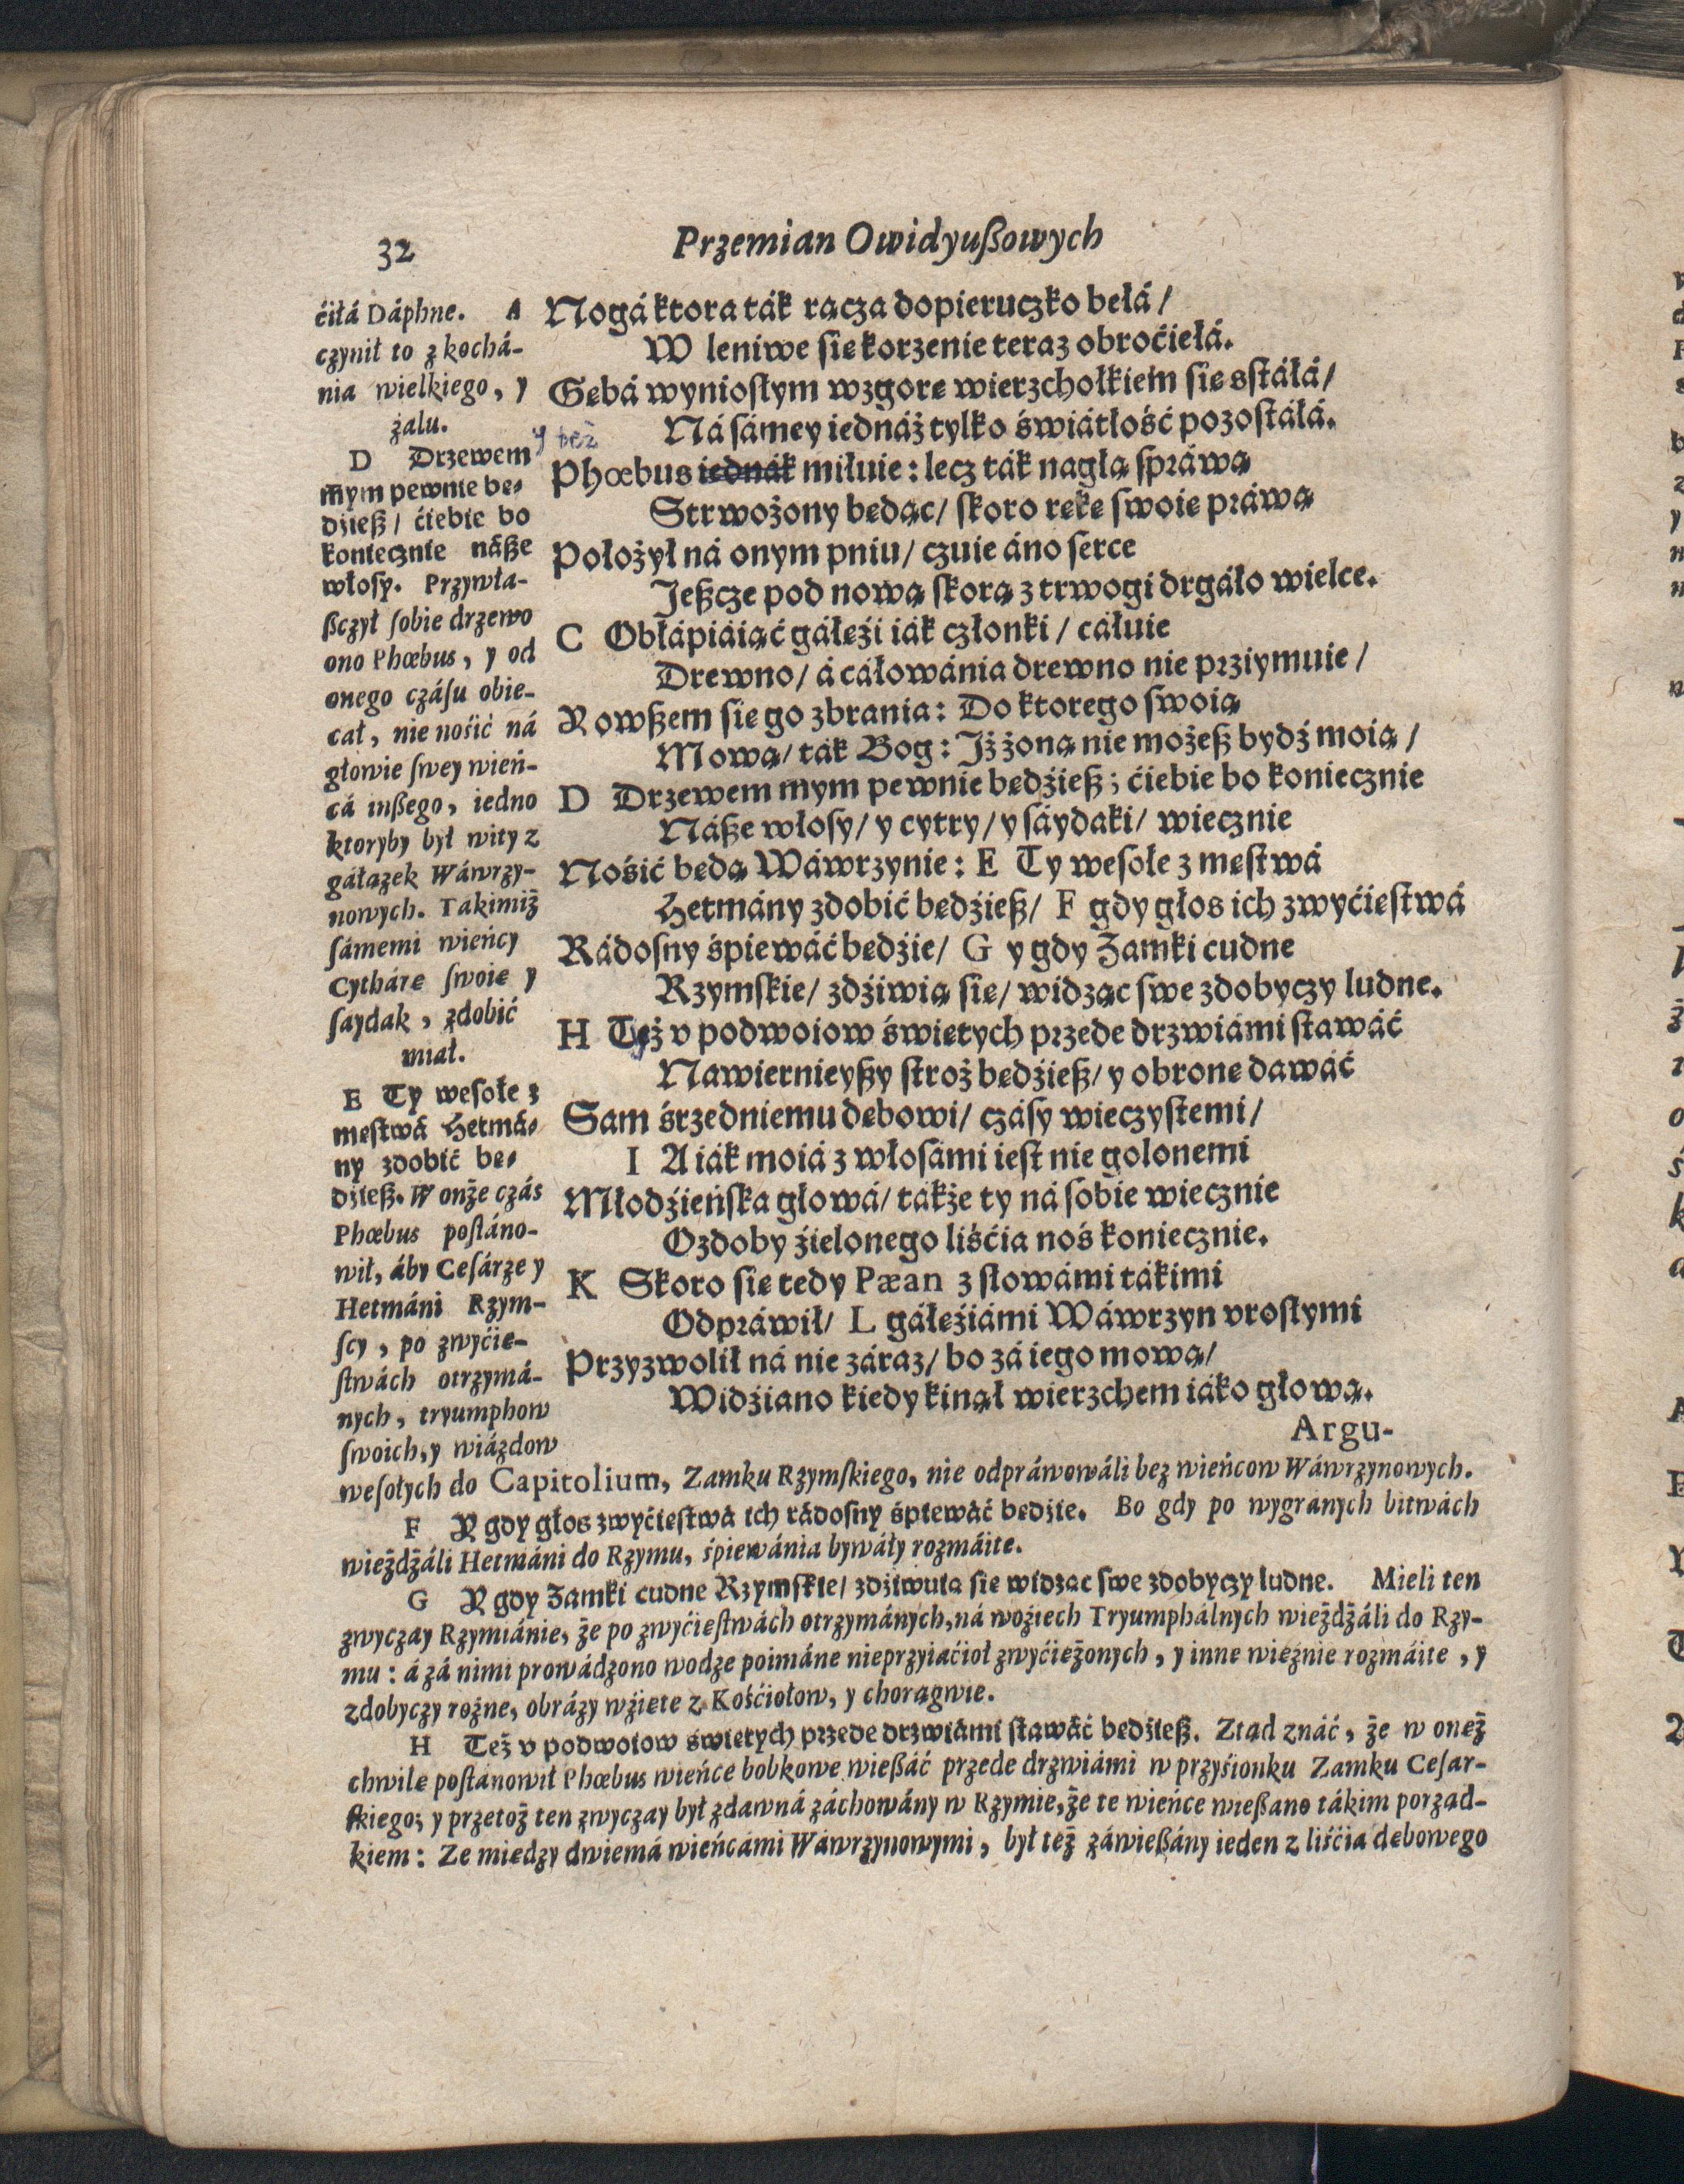 32
Przemian Owidyußowych
ćiłá Dáphne. A
czynił to z kochá-
nia wielkiego, y
żalu.
D Drzewem
mym pewnie be-
dźieß / ćiebie bo
koniecznie náße
włosy. Przywła-
ßczył ſobie drzewo
ono Phœbus, y od
onego czáſu obie-
cał, nie nośić ná
głowie ſwey wień-
cá inßego, iedno
ktoryby był wity z
gáłązek Wáwrzy-
nowych. Tákimiż
ſámemi wieńcy
Cytháre ſwoie y
ſaydak, zdobić
miał.
E Ty weſołe z
meſtwá Hetmá-
ny zdobić be-
dźieß. W onże czás
Phœbus poſtáno-
wił, áby Ceſárze y
Hetmáni Rzym-
ſcy, po zwyćie-
ſtwách otrzymá-
nych, tryumphow
ſwoich, y wiázdow
Nogá ktora ták rącza dopieruczko bełá /
W leniwe ſie korzenie teraz obroćiełá.
Gębá wynioſłym wzgore wierzchołkiem ſie sſtáłá /
Ná ſámey iednáż tylko świátłość pozoſtáłá.
y też
Phœbus iednák miłuie : lecz ták nagłą ſpráwą
Strwożony będąc / ſkoro rękę ſwoię práwą
Położył ná onym pniu / czuie áno ſerce
Jeßcze pod nową ſkorą z trwogi drgáło wielce.
C Obłápiáiąć gáłęźi iák członki / cáłuie
Drewno / á cáłowánia drewno nie prziymuie /
Y owßem ſie go zbrania : Do ktorego ſwoią
Mową / ták Bog : Jż żoną nie możeß bydź moią /
D Drzewem mym pewnie będźieß ; ćiebie bo koniecznie
Náße włoſy / y cytry / y ſáydaki / wiecznie
Nośić będą Wáwrzynie : E Ty weſołe z męſtwá
Hetmány zdobić będźieß / F gdy głos ich zwyćięſtwá
Rádoſny śpiewáć będźie / G y gdy Zamki cudne
Rzymſkie / zdźiwią ſie / widząc ſwe zdobyczy ludne.
H Też v podwoiow świętych przede drzwiámi ſtawáć
Nawiernieyßy ſtroż będźieß / y obronę dawáć
Sam śrzedniemu dębowi / czáſy wieczyſtemi /
I A iák moiá z włoſámi ieſt nie golonemi
Młodźieńſka głowá / tákże ty ná ſobie wiecznie
Ozdoby źielonego liśćia noś koniecznie.
K Skoro ſie tedy Pæan z ſłowámi tákimi
Odpráwił / L gáłęźiámi Wáwrzyn vroſłymi
Przyzwolił ná nie záraz / bo zá iego mową /
Widźiano kiedy kinął wierzchem iáko głową.
Argu-
weſołych do Capitolium, Zamku Rzymſkiego, nie odpráwowáli bez wieńcow Wáwrzynowych.
F Y gdy głos zwyćieſtwá ich rádoſny śpiewáć bedźie. Bo gdy po wygránych bitwách
wieżdżáli Hetmáni do Rzymu, śpiewánia bywáły rozmáite.
G Y gdy Zamki cudne Rzymſkie / zdźiwuią ſie widzac ſwe zdobyczy ludne. Mieli ten
zwyczay Rzymiánie, że po zwyćieſtwách otrzymánych, ná woźiech Tryumphálnych wieżdżáli do Rzy-
mu : á zá nimi prowádzono wodze poimáne nieprzyiaćioł zwyćieżonych, y inne wieźnie rozmáite, y
zdobyczy rożne, obrázy wźiete z Kośćiołow, y chorągwie.
H Też v podwoiow świetych przede drzwiámi ſtawáć bedźieß. Ztad znáć, że w oneż
chwile poſtanowił Phœbus wieńce bobkowe wießáć przede drzwiámi w przyśionku Zamku Ceſar-
ſkiego; y przetoż ten zwyczay był zdawná záchowány w Rzymie, że te wieńce wießano tákim porzad-
kiem : Ze miedzy dwiemá wieńcámi Wáwrzynowymi, był też záwießány ieden z liśćia debowego